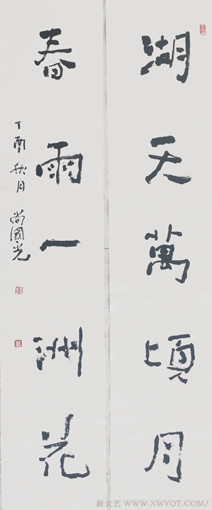 湖天萬頃月
春雨一洲花
丁酉秋月 尚國光
新文艺 WWW.XWYQT.COM/